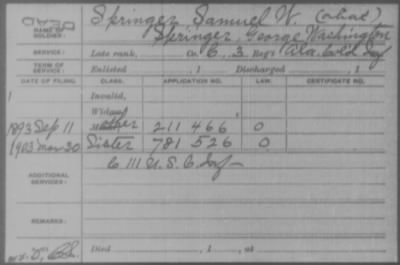 DEAD
Springer, Samuel W. (alias)
NAME OF SOLDIER: Springer, George Washington
SERVICE: Late rank, Co. C, 3 Reg't Ala. Cold Inf
TERM OF SERVICE: Enlisted , 1 Discharged , 1
DATE OF FILING. CLASS. APPLICATION NO. LAW. CERTIFICATE NO.
1 Invalid,
Widow,
1893 Sep 11 Mother 211 466 0
1903 Mar 30 Sister 781 526 0
C 111 U.S.C. Inf
ADDITIONAL SERVICES:
REMARKS:
Died , 1 , at